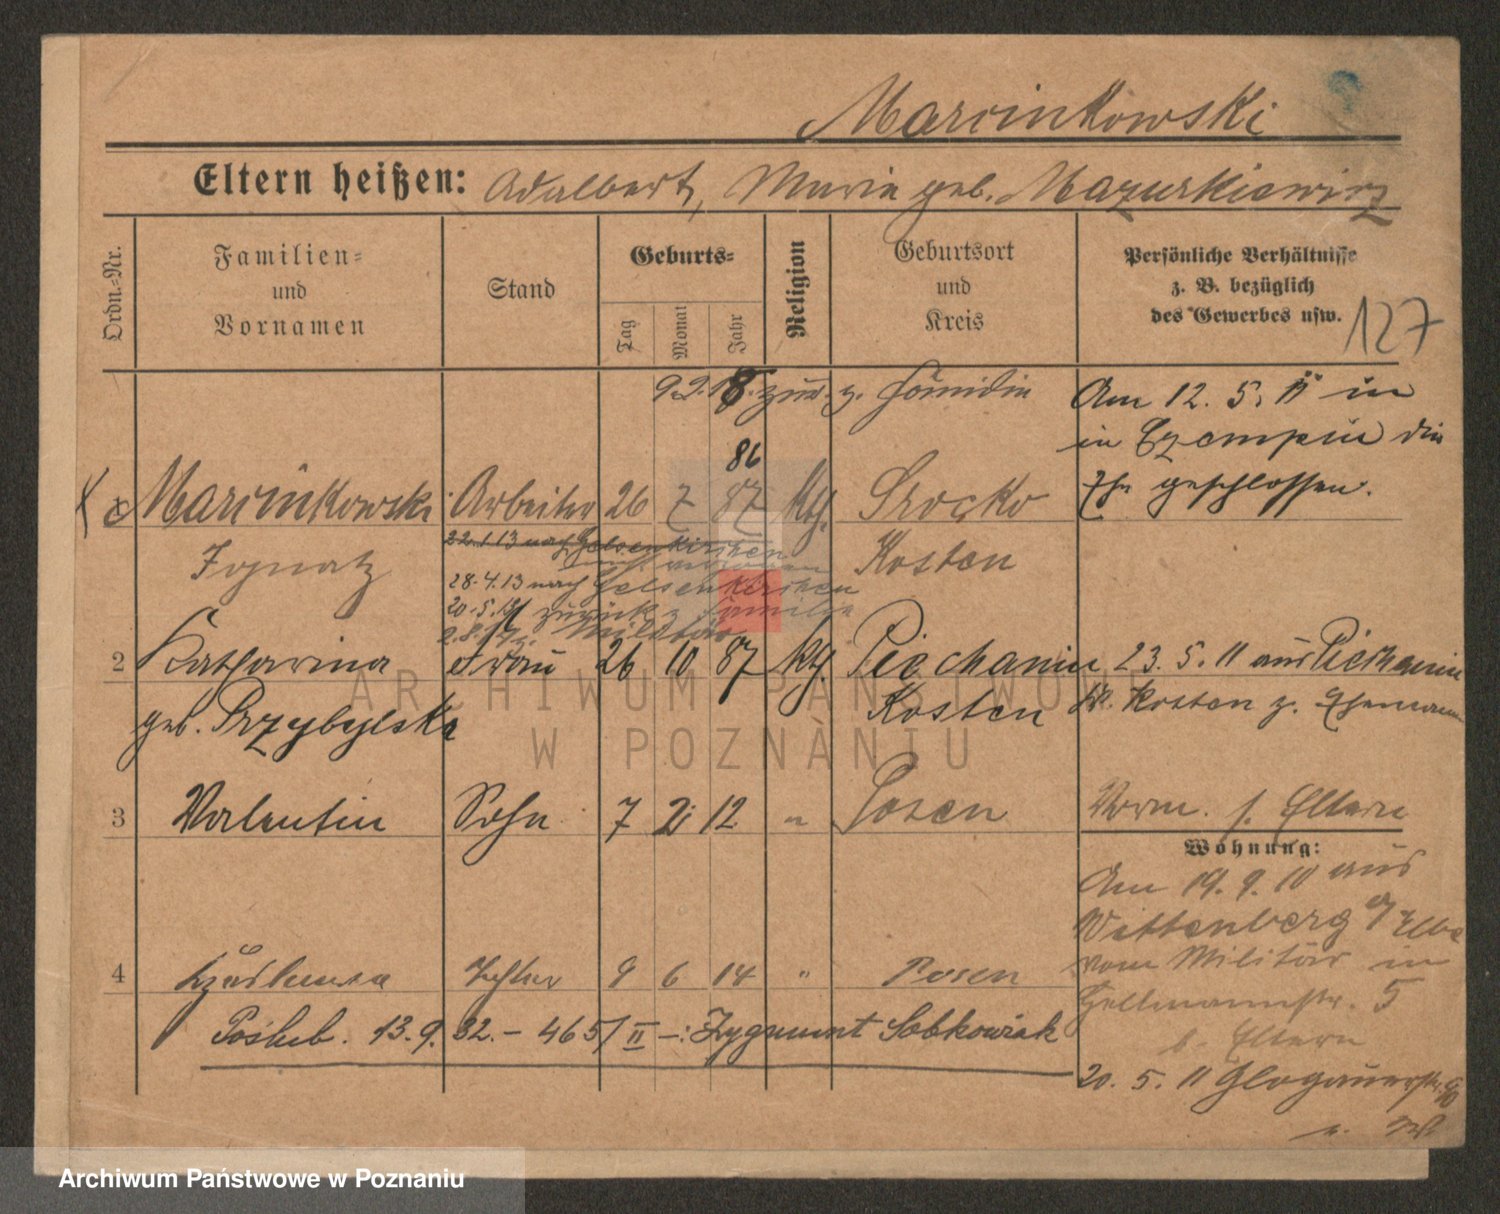 Marcinkowski
Eltern heißen: Adalbert, Maria geb. Mazurkiewicz
Ordn.-Nr.
Familien-
und
Vornamen
Stand
Geburts-
Tag
Monat
Jahr
Religion
Geburtsort
und
Kreis
Persönliche Verhältnisse
z. B. bezüglich
des Gewerbes usw.
127
9.2.18. zur. z. Familie
Am 12. 5. 11 in
in Czempin die
Ehe geschlossen.
86
1 Marcinkowski Arbeiter 26 7 87 kth. Srocko
Ignatz
Kosten
22.1.13 nach Gelsenkirchen
28.4.13 nach Gelsenkirchen
20.5.14 zurück z. Familie
2.8.14 z. Militär
2 Katharina Frau 26 10 87 kth. Piechanin 23. 5. 11 aus Piechanin
geb. Przybylska
Kosten
Kr. Kosten z. Ehemann
3 Valentin Sohn 7 2 12 " Posen
Vorm. s. Eltern
Wohnung:
Am 19. 9. 10 aus
Wittenberg a/Elbe
vom Militär in
Hellmannstr. 5
b. Eltern
20. 5. 11 Glogauerstr. 90
4 Tochter 9 6 14 " Posen
Poślub. 13. 9. 32. - 465/II -: Zygmunt Sobkowiak
ARCHIWUM PAŃSTWOWE
W POZNANIU
Archiwum Państwowe w Poznaniu